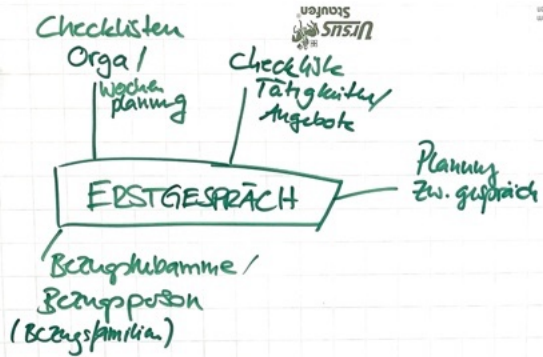 Ursus
Staufen
Checklisten
Orga /
Wochen
planung
Checkliste
Tätigkeiten/
Angebote
ERSTGESPRÄCH
Planung
Zw. gespräch
Bezugshebamme /
Bezugsperson
(Bezugsfamilien)